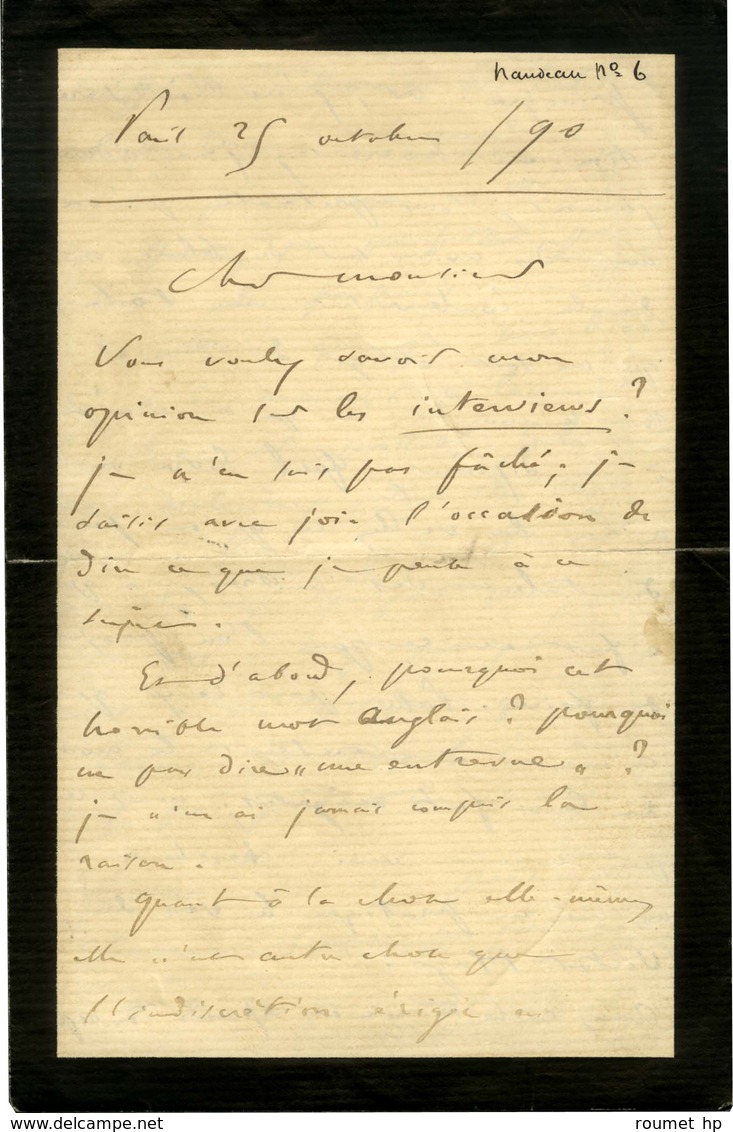 Naudeau No 6
Paris 25 octobre / 90
Cher monsieur
Vous voulez savoir mon
opinion sur les interviews ?
je n'en suis pas fâché ; je
saisis avec joie l'occasion de
dire ce que je pense à ce
sujet.
Et d'abord, pourquoi cet
horrible mot anglais ? pourquoi
ne pas dire « une entrevue » ?
je n'en ai jamais compris la
raison.
quant à la chose elle-même,
elle n'est autre chose que
l'indiscrétion érigée en
roumet hp